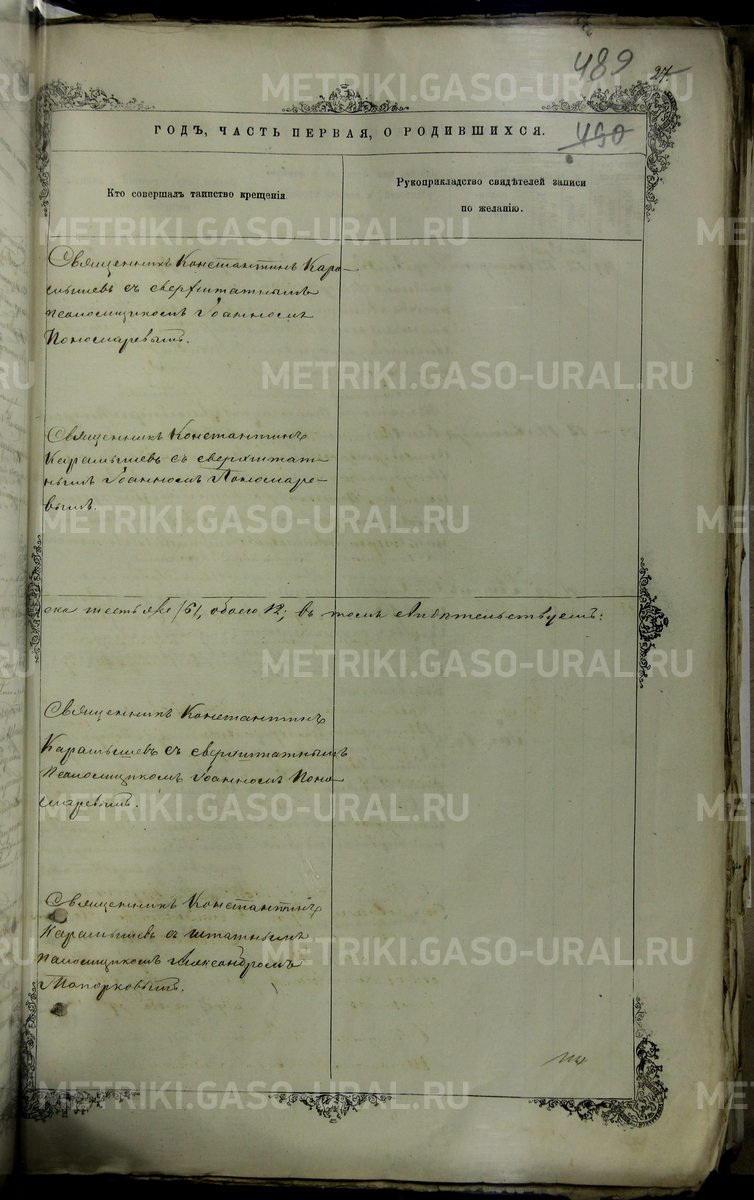 489
27
ГОДЪ, ЧАСТЬ ПЕРВАЯ, О РОДИВШИХСЯ.
490
Кто совершалъ таинство крещенія.
Рукоприкладство свидѣтелей записи
по желанію.
Священникъ Константинъ Кара-
мышевъ съ сверхштатнымъ
псаломщикомъ Іоанномъ
Пономаревымъ.
Священникъ Константинъ
Карамышевъ съ сверхштат-
нымъ Іоанномъ Пономаре-
вымъ.
шесть же /6/, обоего 12; въ томъ свидѣтельствуемъ:
Священникъ Константинъ
Карамышевъ съ сверхштатнымъ
псаломщикомъ Іоанномъ Поно-
маревымъ.
Священникъ Константинъ
Карамышевъ съ штатнымъ
псаломщикомъ Александромъ
Топорковымъ.
METRIKI.GASO-URAL.RU